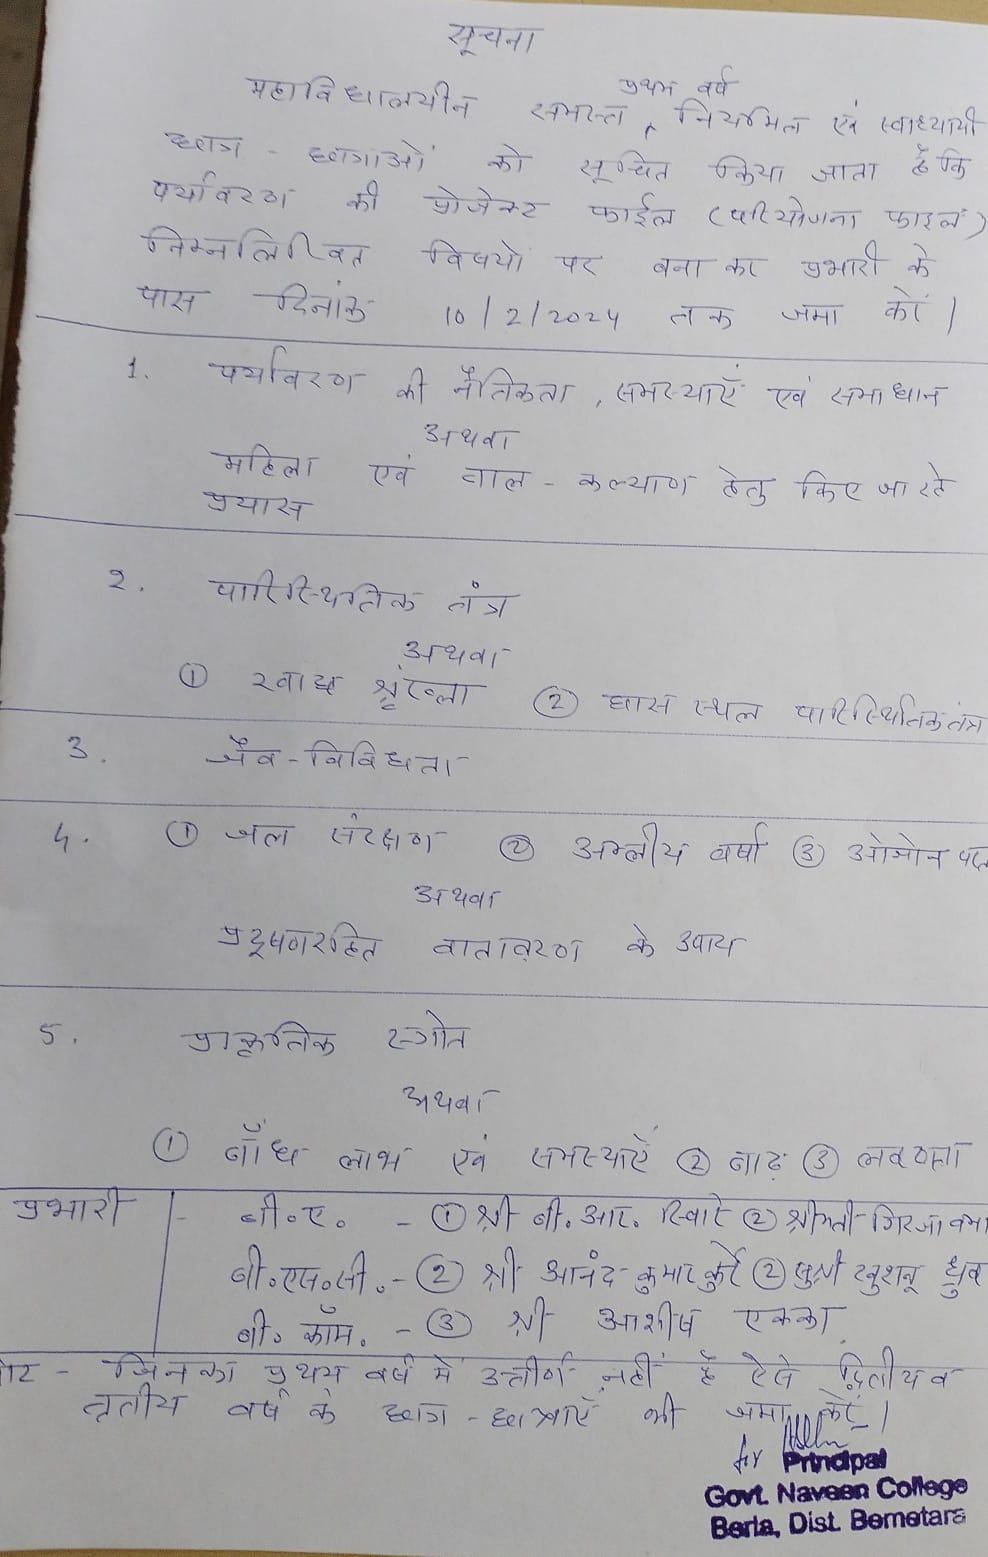 सूचना
प्रथम वर्ष
महाविद्यालयीन समस्त नियमित एवं स्वाध्यायी
छात्र - छात्राओं को सूचित किया जाता है कि
पर्यावरण की प्रोजेक्ट फाईल (परियोजना फाइल)
निम्नलिखित विषयो पर बना कर प्रभारी के
पास दिनांक 10/2/2024 तक जमा करें।
1. पर्यावरण की नैतिकता, समस्याएँ एवं समाधान
अथवा
महिला एवं बाल - कल्याण हेतु किए जा रहे
प्रयास
2. पारिस्थितिक तंत्र
अथवा
① खाद्य श्रृंखला ② घास स्थल पारिस्थितिक तंत्र
3. जैव - विविधता
4. ① जल संरक्षण ② अम्लीय वर्षा ③ ओजोन
अथवा
प्रदूषणरहित वातावरण के उपाय
5. प्राकृतिक स्त्रोत
अथवा
① बाँध लाभ एवं समस्याएँ ② बाढ़ ③ लवणता
प्रभारी - बी.ए. - ① श्री बी. आर. सिवारे ② श्रीमती गिरजा
बी.एस.सी. - ② श्री आनंद कुमार कुर्रे ② सुश्री खुशबू ध्रुव
बी. कॉम. - ③ श्री आशीष एक्का
नोट - जिनका प्रथम वर्ष में उत्तीर्ण नहीं है ऐसे द्वितीय व
तृतीय वर्ष के छात्र - छात्राएँ भी जमा करें।
for Principal
Govt. Naveen College
Berla, Dist. Bemetara